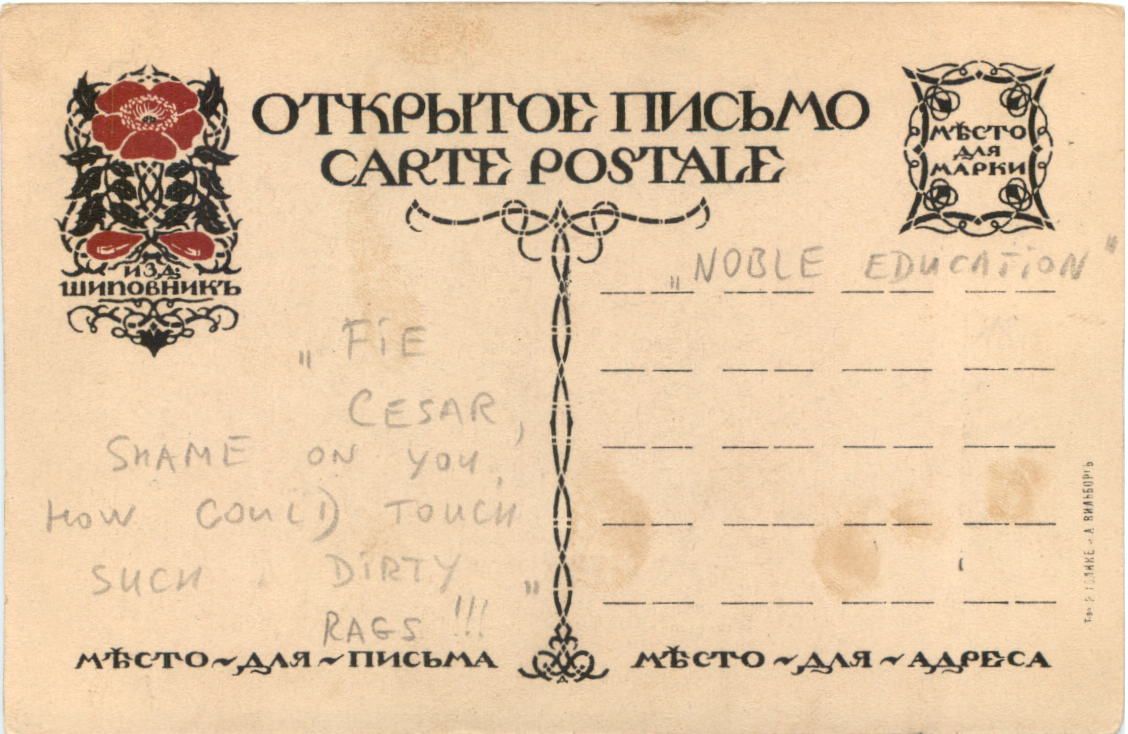 ОТКРЫТОЕ ПИСЬМО
CARTE POSTALE
МѢСТО
ДЛЯ
МАРКИ
ИЗД.
ШИПОВНИКЪ
„NOBLE EDUCATION"
„FIE
CESAR,
SHAME ON YOU,
HOW COULD TOUCH
SUCH DIRTY
RAGS!!!"
МѢСТО~ДЛЯ~ПИСЬМА
МѢСТО~ДЛЯ~АДРЕСА
Р. ГОЛИКЕ и А. ВИЛЬБОРГЪ